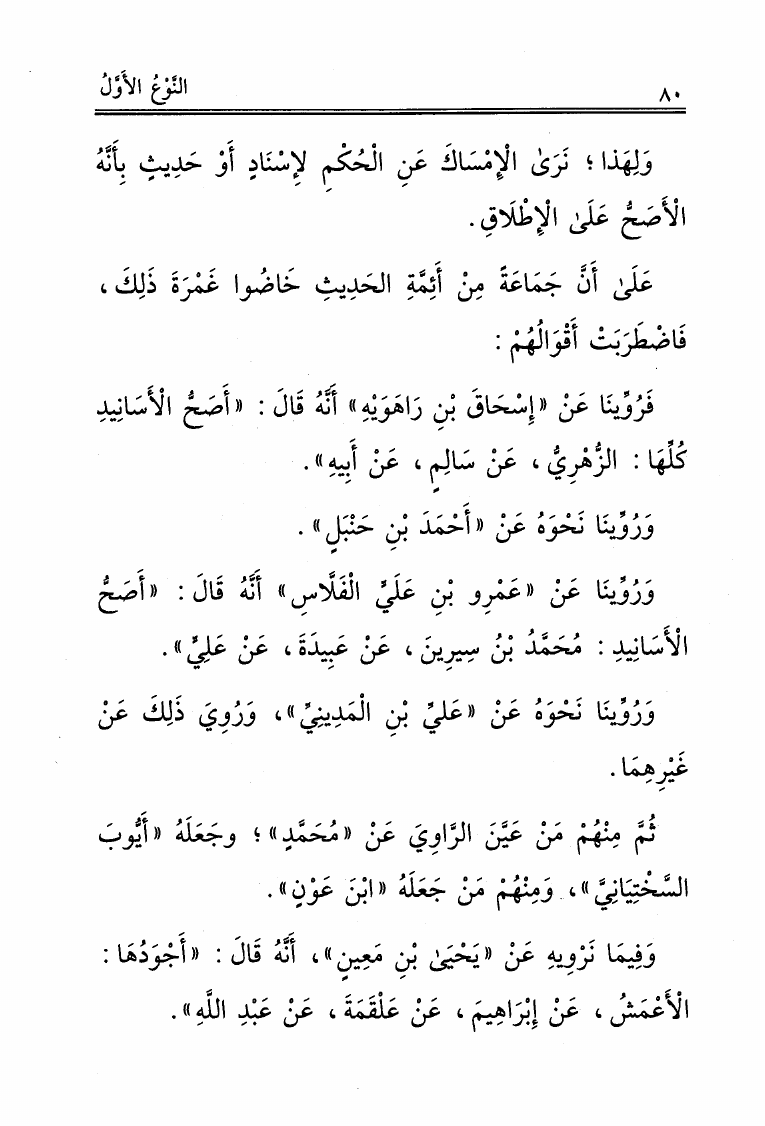 ٨٠ النَّوْعُ الأَوَّلُ
وَلِهَذا؛ نَرَىٰ الْإِمْسَاكَ عَنِ الْحُكْمِ لِإِسْنَادٍ أَوْ حَدِيثٍ بِأَنَّهُ
الْأَصَحُّ عَلَىٰ الْإِطْلَاقِ.
عَلَىٰ أَنَّ جَمَاعَةً مِنْ أَئِمَّةِ الحَدِيثِ خَاضُوا غَمْرَةَ ذَلِكَ،
فَاضْطَرَبَتْ أَقْوَالُهُمْ:
فَرُوِّينَا عَنْ «إِسْحَاقَ بْنِ رَاهَوَيْهِ» أَنَّهُ قَالَ: «أَصَحُّ الْأَسَانِيدِ
كُلِّهَا: الزُّهْرِيُّ، عَنْ سَالِمٍ، عَنْ أَبِيهِ».
وَرُوِّينَا نَحْوَهُ عَنْ «أَحْمَدَ بْنِ حَنْبَلٍ».
وَرُوِّينَا عَنْ «عَمْرِو بْنِ عَلَيٍّ الْفَلَّاسِ» أَنَّهُ قَالَ: «أَصَحُّ
الْأَسَانِيدِ: مُحَمَّدُ بْنُ سِيرِينَ، عَنْ عَبِيدَةَ، عَنْ عَلِيٍّ».
وَرُوِّينَا نَحْوَهُ عَنْ «عَليِّ بْنِ الْمَدِينِيِّ»، وَرُوِيَ ذَلِكَ عَنْ
غَيْرِهِمَا.
ثُمَّ مِنْهُمْ مَنْ عَيَّنَ الرَّاوِيَ عَنْ «مُحَمَّدٍ»؛ وجَعَلَهُ «أَيُّوبَ
السَّخْتِيَانِيَّ»، وَمِنْهُمْ مَنْ جَعَلَهُ «ابْنَ عَوْنٍ».
وَفِيمَا نَرْوِيهِ عَنْ «يَحْيَىٰ بْنِ مَعِينٍ»، أَنَّهُ قَالَ: «أَجْوَدُهَا:
الْأَعْمَشُ، عَنْ إِبْرَاهِيمَ، عَنْ عَلْقَمَةَ، عَنْ عَبْدِ اللَّهِ».